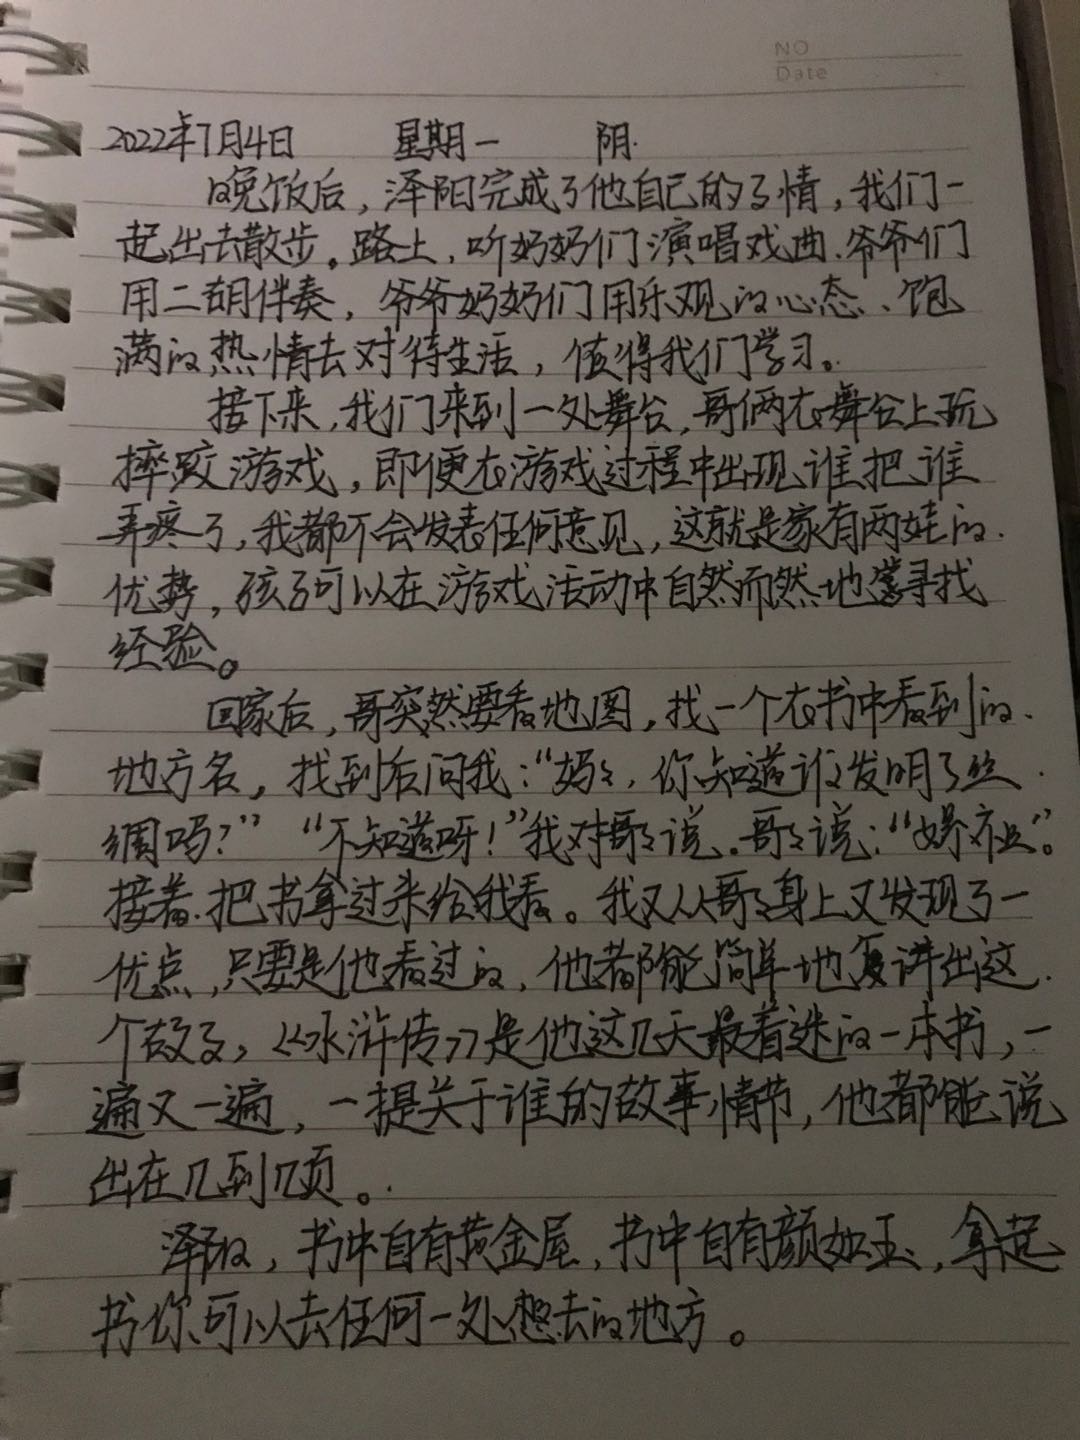 NO
Date
2022年7月4日 星期一 阴.
晚饭后，泽阳完成了他自己的事情，我们一
起出去散步。路上，听奶奶们演唱戏曲、爷爷们
用二胡伴奏，爷爷奶奶们用乐观的心态、饱
满的热情去对待生活，值得我们学习。
接下来，我们来到一处舞台，哥俩在舞台上玩
摔跤游戏，即便在游戏过程中出现谁把谁
弄疼了，我都不会发表任何意见，这就是家有两娃的
优势，孩子可以在游戏活动中自然而然地寻找
经验。
回家后，哥突然要看地图，找一个在书中看到的
地方名，找到后问我：“妈妈，你知道谁发明了丝
绸吗？”“不知道呀！”我对哥哥说。哥哥说：“嫘祖。”
接着.把书拿过来给我看。我又从哥哥身上又发现了一
优点，只要是他看过的，他都能简单地复讲出这
个故事，《水浒传》是他这几天最着迷的一本书，一
遍又一遍，一提关于谁的故事情节，他都能说
出在几到几页。
泽阳，书中自有黄金屋，书中自有颜如玉，拿起
书你可以去任何一处想去的地方。